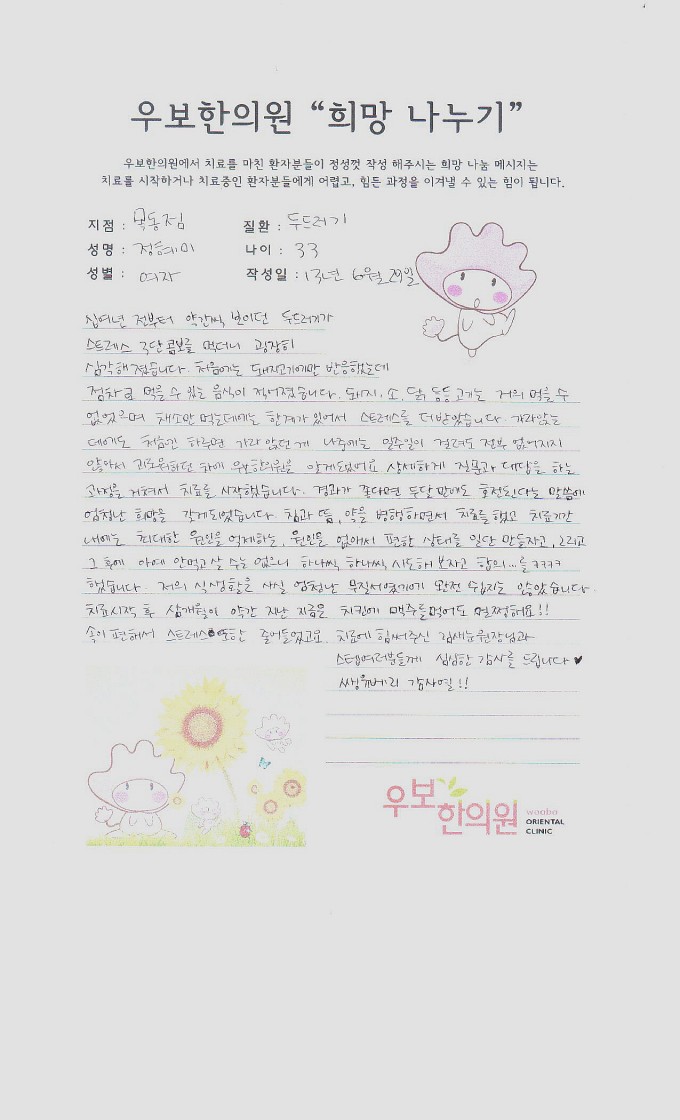 우보한의원 “희망 나누기”
우보한의원에서 치료를 마친 환자분들이 정성껏 작성 해주시는 희망 나눔 메시지는
치료를 시작하거나 치료중인 환자분들에게 어렵고, 힘든 과정을 이겨낼 수 있는 힘이 됩니다.
지점 : 목동점 질환 : 두드러기
성명 : 정혜미 나이 : 33
성별 : 여자 작성일 : 13년 6월 29일
십여년 전부터 약간씩 보이던 두드러기가
스트레스 극단 콤보를 먹더니 굉장히
심각해졌습니다. 처음에는 돼지고기에만 반응했는데
점차로 먹을 수 있는 음식이 적어졌습니다. 돼지, 소, 닭 등등 고기는 거의 먹을 수
없었으며 채소만 먹는데에는 한계가 있어서 스트레스를 더 받았습니다. 가라앉는
데에도 처음엔 하루면 가라 앉던게 나중에는 일주일이 걸려도 전부 없어지지
않아서 괴로워하던 차에 우보한의원을 알게되었어요. 상세하게 질문과 대답을 하는
과정을 거쳐서 치료를 시작했습니다. 경과가 좋다면 두달만에도 호전된다는 말씀에
엄청난 희망을 갖게되었습니다. 침과 뜸, 약을 병행하면서 치료를 했고 치료기간
내에는 최대한 원인을 억제하는, 원인을 없애서 편한 상태를 일단 만들자고, 그리고
그 후에 아예 안먹고 살 수는 없으니 하나씩, 하나씩, 시도해 보자고 합의...를 ㅋㅋㅋㅋ
했습니다. 저의 식생활은 사실 엄청난 무질서였기에 완전 쉽지는 않았습니다.
치료시작 후 삼개월이 약간 지난 지금은 치킨에 맥주를 먹어도 멀쩡해요!!
속이 편해서 스트레스 또한 줄어들었고요. 치료에 힘써주신 김세윤원장님과
스텝여러분들께 심심한 감사를 드립니다 ♥
쌩유베리 감사열!!
우보한의원
woobo
ORIENTAL
CLINIC